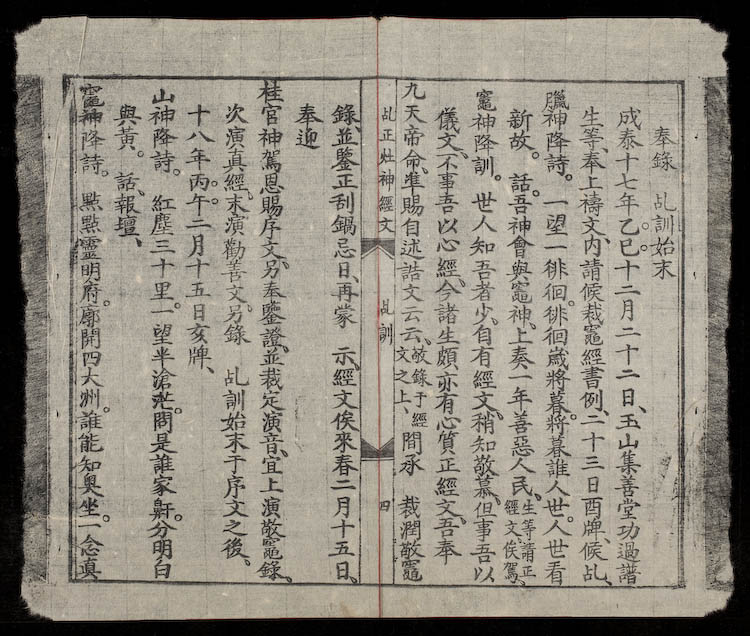 奉錄 乩訓始末
成泰十七年乙巳十二月二十二日、玉山集善堂功過譜
生等、奉上禱文、內請候裁竈經書例、二十三日酉牌、候乩、
臘神降詩。 一望一徘徊。徘徊嵗將暮。將暮誰人世。人世看
新故。 話。吾神會與竈神、上奏一年善惡人民、生等請正經文俟駕、
竈神降訓。 世人知吾者少、自有經文、稍知敬慕。但事吾以
儀文、不事吾以心經、今諸生頗亦有心質正經文、吾奉
九天帝命、准賜自述誥文云云、故錄于經文之上、 間承 裁潤敬竈
乩正灶神經文 乩訓 四
錄、並鑒正刮鍋忌日、再蒙 示、經文俟來春二月十五日、
奉迎
桂宮神駕恩賜序文、另奉鑒證、並裁定演音、宜上演敬竈錄、
次演真經、末演勸善文、另錄 乩訓始末于序文之後、
十八年丙午二月十五日亥牌、
山神降詩。 紅塵三十里。一望半滄茫。問是誰家鼾。分明白
與黃。 話、報壇、
竈神降詩。 點點靈明府。廓開四大洲。誰能知奧坐。一念真